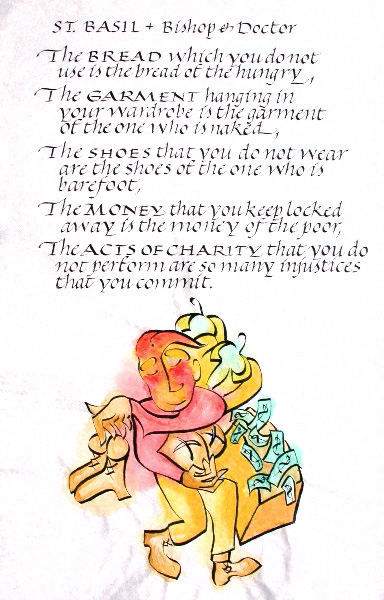 ST. BASIL + Bishop & Doctor
The BREAD which you do not
use is the bread of the hungry,
The GARMENT hanging in
your wardrobe is the garment
of the one who is naked,
The SHOES that you do not wear
are the shoes of the one who is
barefoot,
The MONEY that you keep locked
away is the money of the poor,
The ACTS OF CHARITY that you do
not perform are so many injustices
that you commit.